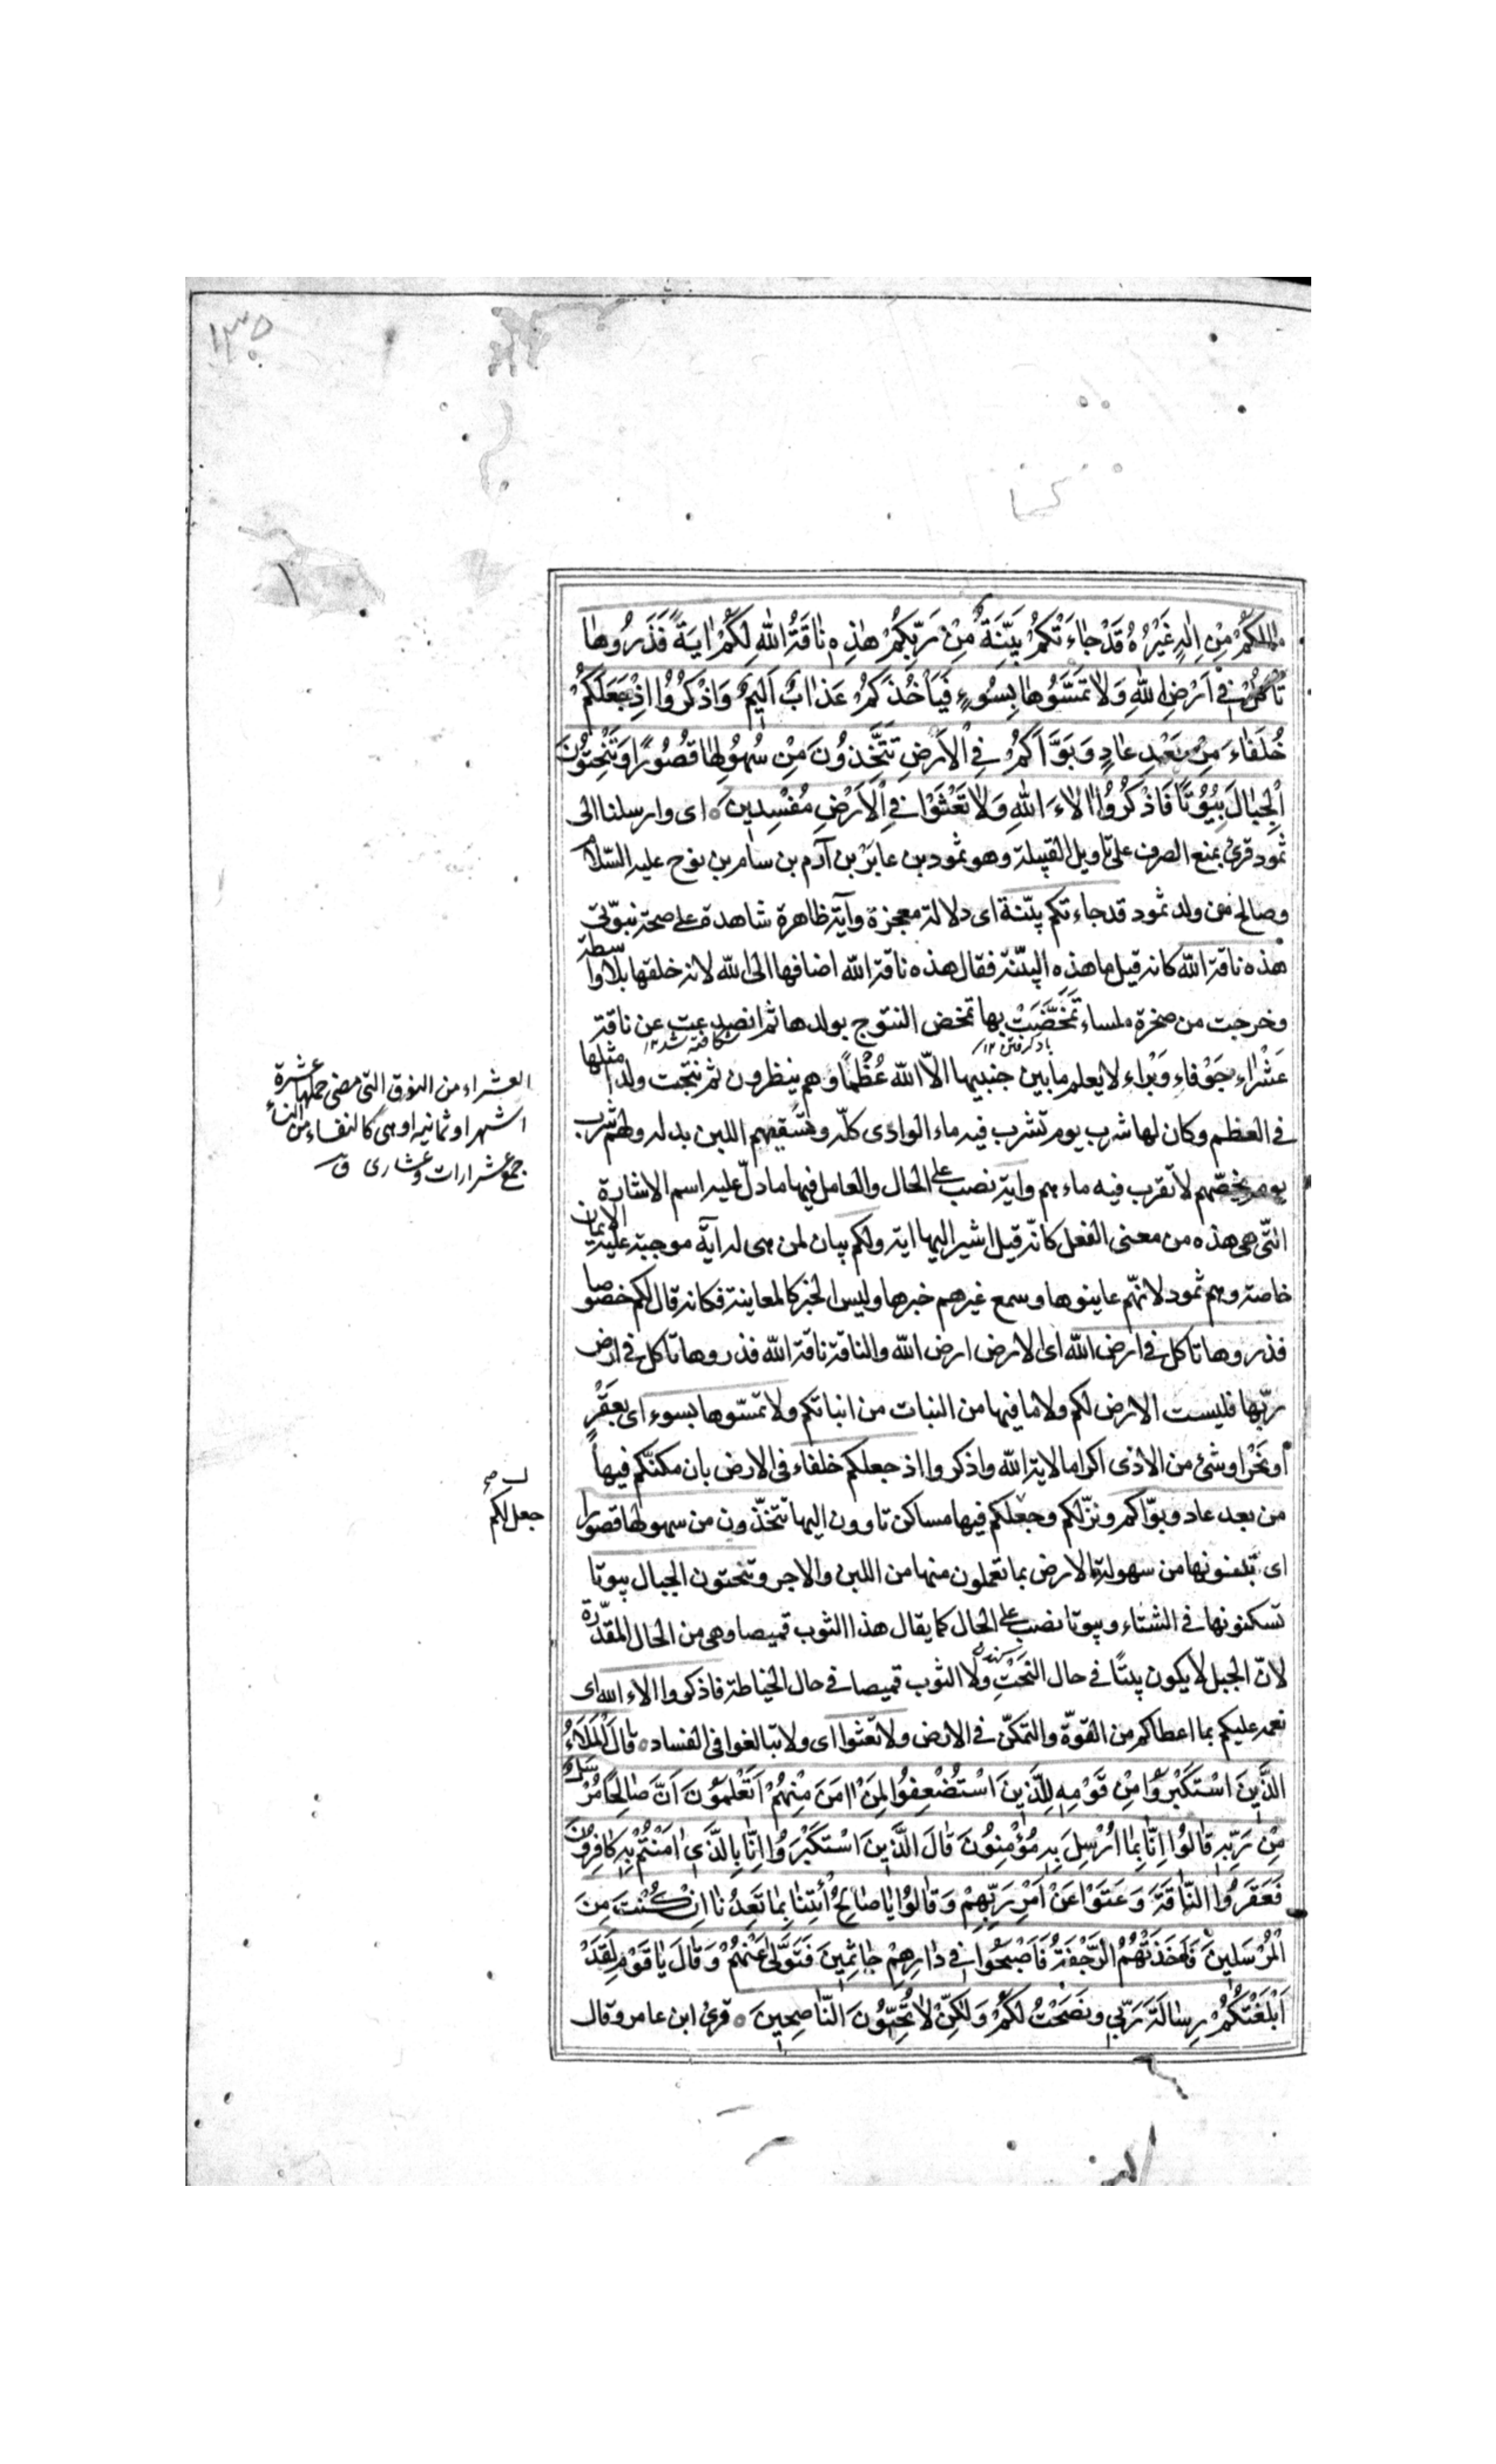 مالكم مِنْ اِلهٍ غَيْرُهُ قَدْ جاءَتْكُمْ بَيِّنَةٌ مِنْ رَبِّكُمْ هذِهِ ناقَةُ اللهِ لَكُمْ ايَةً فَذَرُوها
تَأْكُلْ فى اَرْضِ اللهِ وَلا تَمَسُّوها بِسُوءٍ فَيَأْخُذَكُمْ عَذابٌ اَليمٌ وَاذْكُرُوا اِذْ جَعَلَكُمْ
خُلَفاءَ مِنْ بَعْدِ عادٍ وَبَوَّاَكُمْ فِى الْاَرْضِ تَتَّخِذُونَ مِنْ سُهُولِها قُصُورًا وَتَنْحِتُونَ
الْجِبالَ بُيُوتًا فَاذْكُرُوا الاءَ اللهِ وَلا تَعْثَوْا فِى الْاَرْضِ مُفْسِدينَ ه اى وارسلنا الى
ثمود قرئ بمنع الصرف على تاويل القبيلة وهو ثمود بن عابر بن آدم بن سام بن نوح عليه السّلام
وصالح من ولد ثمود قد جاءتكم بيّنة اى دلالة معجزة وآية ظاهرة شاهدة على صحة نبوّتى
هذه ناقة اللّه كانه قيل ما هذه البيّنة فقال هذه ناقة اللّه اضافها الى اللّه لانه خلقها بلا واسطة
وخرجت من صخرة ملساء تَمَخَّضَتْ بها تمخض النتوج بولدها ثم انصدعت عن ناقة
عَشْراء جَوْفاء وَبْراء لا يعلم ما بين جنبيها الاّ اللّه عُظْمًا وهم ينظرون ثم نتجت ولدا مثلها
فى العظم وكان لها شرب يوم تشرب فيه ماء الوادى كلّه وتسقيهم اللبن بدله ولهم شرب
يوم يخصّهم لا تقرب فيه ماءهم واية نصب على الحال والعامل فيها ما دلّ عليه اسم الاشارة
الّتى هى هذه من معنى الفعل كانّه قيل اشير اليها اية ولكم بيان لمن هى له آية موجبة عليه الايمان
خاصة وهم ثمود لانّهم عاينوها وسمع غيرهم خبرها وليس الخبر كالمعاينة فكانه قال لكم خصوصا
فذروها تاكل فى ارض اللّه اى الارض ارض اللّه والناقة ناقة اللّه فذروها تاكل فى ارض
ربّها فليست الارض لكم ولا ما فيها من النبات من انباتكم ولا تمسّوها بسوء اى بعَقْرٍ
او نَحْر او شئ من الاذى اكراما لاية اللّه واذكروا اذ جعلكم خلفاء فى الارض بان مكنّكم فيها
من بعد عاد وبوّاكم ونزّلكم وجعلكم فيها مساكن تاوون اليها تتخذون من سهولها قصورا
اى تبنونها من سهولة الارض بما تعملون منها من اللبن والاجر وتنحتون الجبال بيوتا
تسكنونها فى الشتاء وبيوتا نصب على الحال كما يقال هذا الثوب قميصا وهى من الحال المقدّرة
لانّ الجبل لا يكون بيتًا فى حال النَحْتِ ولا الثوب قميصا فى حال الخياطة فاذكروا الاء اللّه اى
نعمه عليكم بما اعطاكم من القوّة والتمكّن فى الارض ولا تعثوا اى ولا تبالغوا فى الفساد ه قالَ الْمَلَأُ
الَّذينَ اسْتَكْبَرُوا مِنْ قَوْمِهِ لِلَّذينَ اسْتُضْعِفُوا لِمَنْ امَنَ مِنْهُمْ اَتَعْلَمُونَ اَنَّ صالِحًا مُرْسَلٌ
مِنْ رَبِّهِ قالُوا اِنّا بِما اُرْسِلَ بِهِ مُؤْمِنُونَ قالَ الَّذينَ اسْتَكْبَرُوا اِنّا بِالَّذى امَنْتُمْ بِهِ كافِرُونَ
فَعَقَرُوا النّاقَةَ وَعَتَوْا عَنْ اَمْرِ رَبِّهِمْ وَقالُوا يا صالِحُ ائْتِنا بِما تَعِدُنا اِنْ كُنْتَ مِنَ
الْمُرْسَلينَ فَاَخَذَتْهُمُ الرَّجْفَةُ فَاَصْبَحُوا فى دارِهِمْ جاثِمينَ فَتَوَلّى عَنْهُمْ وَقالَ يا قَوْمِ لَقَدْ
اَبْلَغْتُكُمْ رِسالَةَ رَبّى وَنَصَحْتُ لَكُمْ وَلكِنْ لا تُحِبُّونَ النّاصِحينَ ه قرئ ابن عامر وقال
العشراء من النوق التى مضى حملها عشرة
اشهر او ثمانية او هى كالنفساء من النساء
جمع عشراوات وعشارى ق
جعل لكم
١٣٥